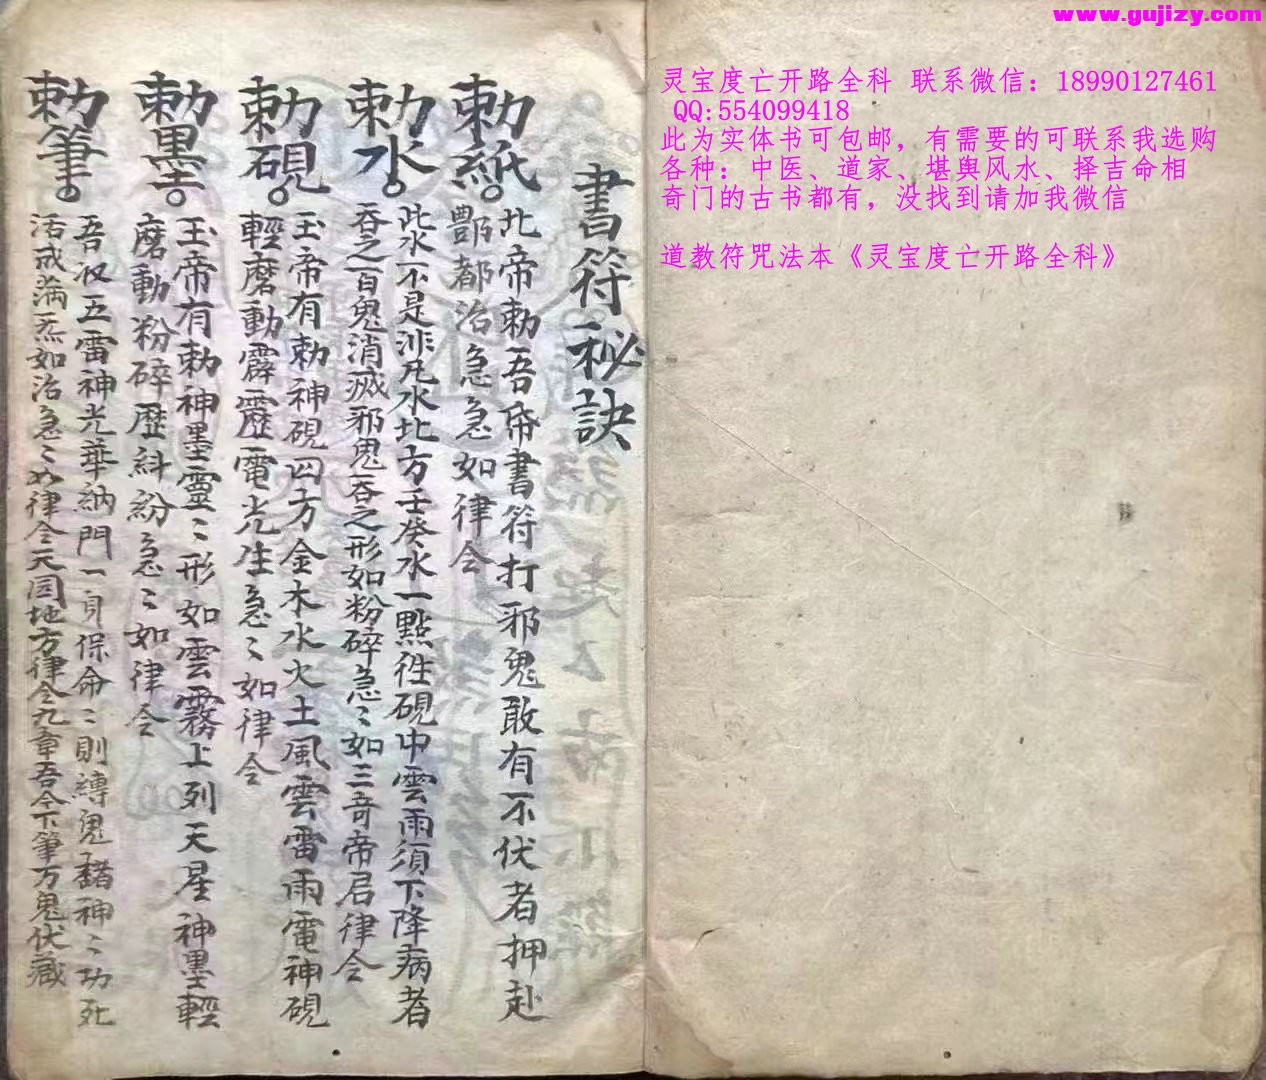 www.gujizy.com
灵宝度亡开路全科 联系微信：18990127461
QQ:554099418
此为实体书可包邮，有需要的可联系我选购
各种：中医、道家、堪舆风水、择吉命相
奇门的古书都有，没找到请加我微信
道教符咒法本《灵宝度亡开路全科》
書符秘訣
勅紙
北帝勅吾帋書符打邪鬼敢有不伏者押赴
酆都治急急如律令
勅水
此水不是非凡水北方壬癸水一點往硯中雲雨須下降病者
吞之百鬼消滅邪鬼吞之形如粉碎急〻如三奇帝君律令
勅硯
玉帝有勅神硯四方金木水火土風雲雷雨電神硯
輕磨動霹靂電光生急〻如律令
勅墨
玉帝有勅神墨靈〻形如雲霧上列天星神墨輕
磨動粉碎歷糾紛急〻如律令
勅筆
吾奴五雷神光華納門一身保命〻則縛鬼神〻功死
活戒滿炁如治急〻如律令天圆地方律令九章吾今下筆万鬼伏藏